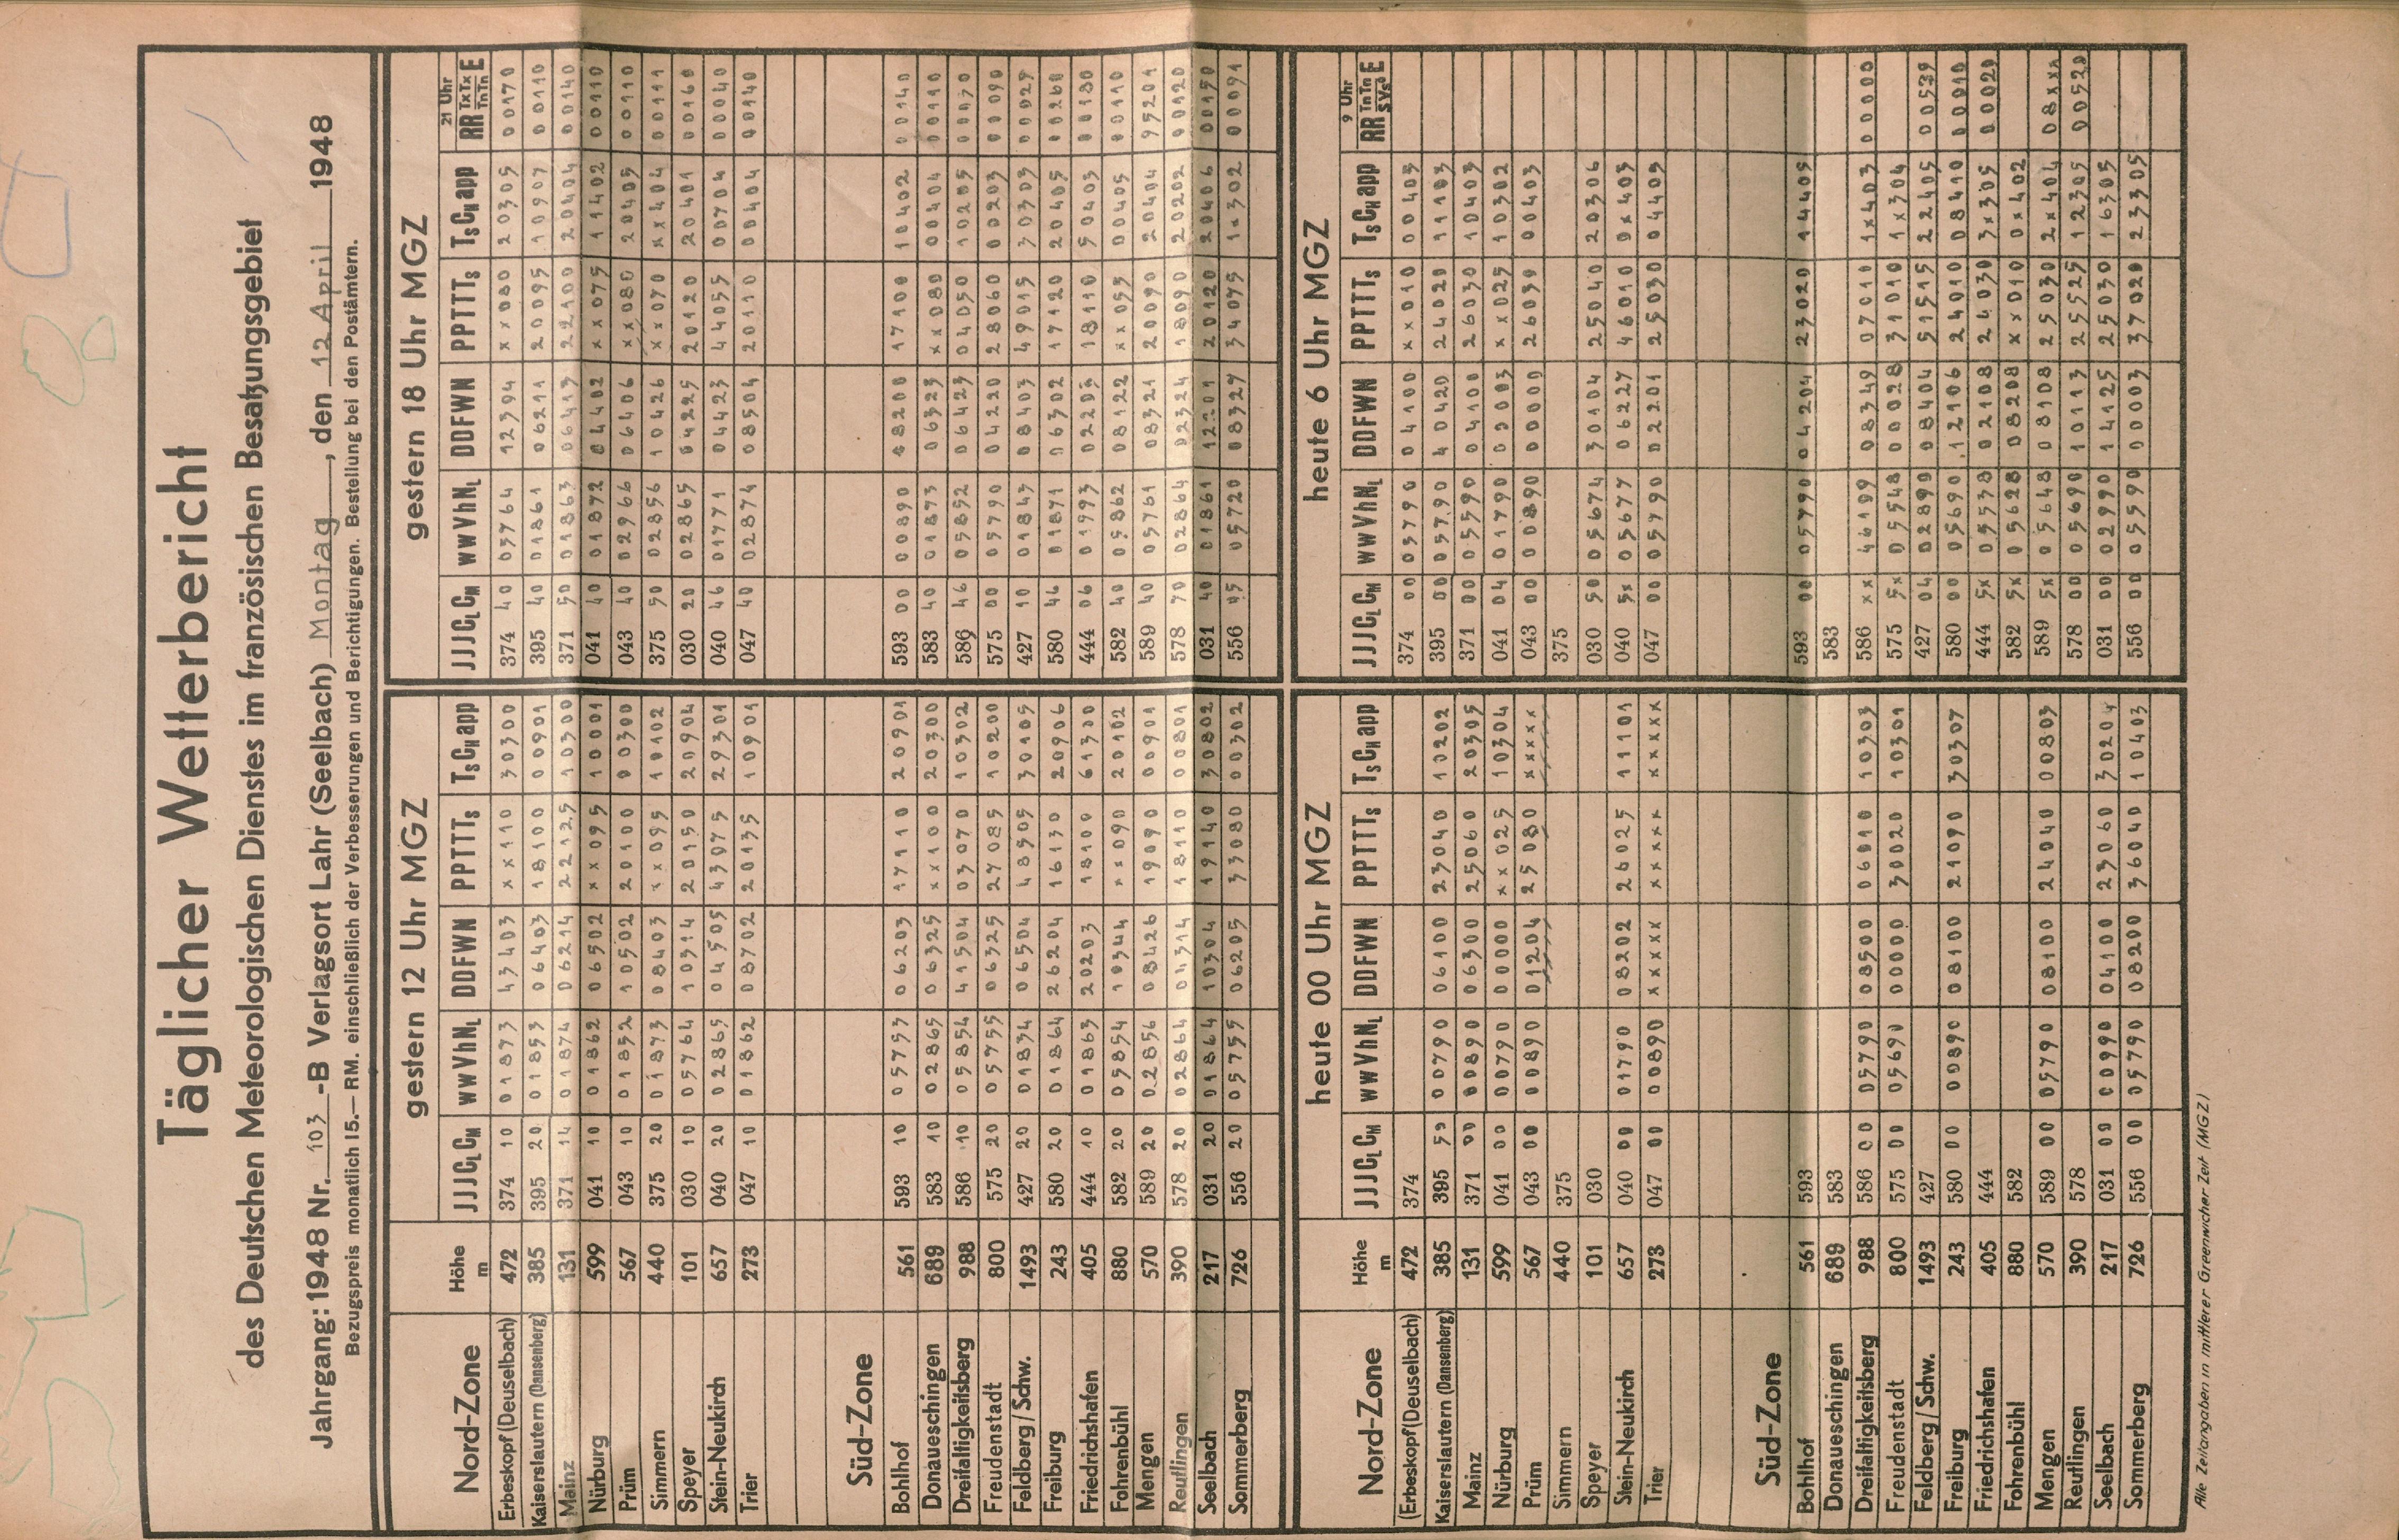 Täglicher Wetterbericht
des Deutschen Meteorologischen Dienstes im französischen Besatzungsgebiet
Jahrgang: 1948 Nr. 103 -B Verlagsort Lahr (Seelbach) Montag, den 12 April 1948
Bezugspreis monatlich 15.— RM. einschließlich der Verbesserungen und Berichtigungen. Bestellung bei den Postämtern.
gestern 12 Uhr MGZ gestern 18 Uhr MGZ
Nord-Zone Höhe m JJJCLCM wwVhNL DDFWN PPTTTs TsCHapp JJJCLCM wwVhNL DDFWN PPTTTs TsCHapp 21 Uhr RR TxTx TnTn E
Erbeskopf (Deuselbach) 472 374 10 01873 43403 xx110 30300 374 40 03764 12394 xx080 20305 00170
Kaiserslautern (Dansenberg) 385 395 20 01853 06403 18100 00901 395 40 01861 06211 20095 10907 00110
Mainz 131 371 14 01874 06214 22125 10300 371 50 01863 06413 22100 20404 00140
Nürburg 599 041 10 01862 06502 xx095 10001 041 40 01872 04402 xx075 11402 00110
Prüm 567 043 10 01852 10502 20100 00300 043 40 02966 06406 xx080 20405 00110
Simmern 440 375 20 01873 08403 xx095 10102 375 50 02856 10426 xx070 xx404 00111
Speyer 101 030 10 05764 10314 20150 20904 030 20 02865 04225 20120 20401 00160
Stein-Neukirch 657 040 20 02865 04505 43075 29301 040 46 01771 04423 44055 00704 00040
Trier 273 047 10 01862 08702 20135 10901 047 40 02874 08504 20110 00404 00140
Süd-Zone
Bohlhof 561 593 10 05753 06203 17110 20901 593 00 00890 48200 17100 10402 00140
Donaueschingen 689 583 10 02865 06325 xx100 20300 583 40 01873 06323 xx080 00404 00110
Dreifaltigkeitsberg 988 586 10 05854 41504 03070 10302 586 46 05852 06423 04050 10205 00070
Freudenstadt 800 575 20 05755 06325 27085 10200 575 00 05790 04220 28060 00203 00090
Feldberg/Schw. 1493 427 20 01834 06504 48505 30105 427 10 01843 08403 49015 30303 00029
Freiburg 243 580 20 01864 26204 16130 20906 580 46 01871 06302 17120 20405 00260
Friedrichshafen 405 444 10 01863 20203 18100 61300 444 06 01993 02203 18110 50403 00180
Fohrenbühl 880 582 20 05854 10344 xx090 20102 582 40 05862 08122 xx055 00405 00110
Mengen 570 589 20 02856 08426 19090 00901 589 40 05761 08321 20090 20404 95201
Reutlingen 390 578 20 02864 04314 18110 00801 578 70 02864 02324 18090 20202 00120
Seelbach 217 031 20 01864 10304 19140 30802 031 40 01861 12201 20120 20406 00150
Sommerberg 726 556 20 05755 06205 33080 00302 556 45 05720 08327 34075 1x302 00091
heute 00 Uhr MGZ heute 6 Uhr MGZ
Nord-Zone Höhe m JJJCLCM wwVhNL DDFWN PPTTTs TsCHapp JJJCLCM wwVhNL DDFWN PPTTTs TsCHapp 9 Uhr RR TnTn SVs E
(Erbeskopf (Deuselbach) 472 374 374 00 05790 04100 xx010 00403
Kaiserslautern (Dansenberg) 385 395 50 00790 06100 23040 10202 395 00 05790 40420 24020 11103
Mainz 131 371 00 00890 06300 25060 20305 371 00 05590 04100 26030 10403
Nürburg 599 041 00 00790 00000 xx025 10304 041 04 01790 00003 xx025 10302
Prüm 567 043 00 00890 01204 25080 xxxxx 043 00 00890 00000 26030 00403
Simmern 440 375 375
Speyer 101 030 030 50 05674 30104 25040 20306
Stein-Neukirch 657 040 00 01790 08202 26025 11101 040 5x 05677 06227 46010 0x403
Trier 273 047 00 00890 xxxxx xxxxx xxxxx 047 00 05790 02201 25030 04403
Süd-Zone
Bohlhof 561 593 593 00 05790 04204 23020 14405
Donaueschingen 689 583 583
Dreifaltigkeitsberg 988 586 00 05790 08500 06010 10303 586 xx 46199 08349 07010 1x403 00000
Freudenstadt 800 575 00 05690 00000 30020 10301 575 5x 05548 00028 31010 1x304
Feldberg/Schw. 1493 427 427 04 02890 08404 51515 22405 00539
Freiburg 243 580 00 00890 08100 21090 30307 580 00 05690 12106 24010 08410 00010
Friedrichshafen 405 444 444 5x 05538 02108 24030 3x305 00020
Fohrenbühl 880 582 582 5x 05628 08208 xx010 0x402
Mengen 570 589 00 05790 08100 24040 00803 589 5x 05648 08108 25030 2x404 08xxx
Reutlingen 390 578 578 00 05690 10113 25525 12305 00520
Seelbach 217 031 00 00990 04100 23060 30204 031 00 02990 14125 25030 16305
Sommerberg 726 556 00 05790 08200 36040 10403 556 00 05590 00003 37020 23305
Alle Zeitangaben in mittlerer Greenwicher Zeit (MGZ)